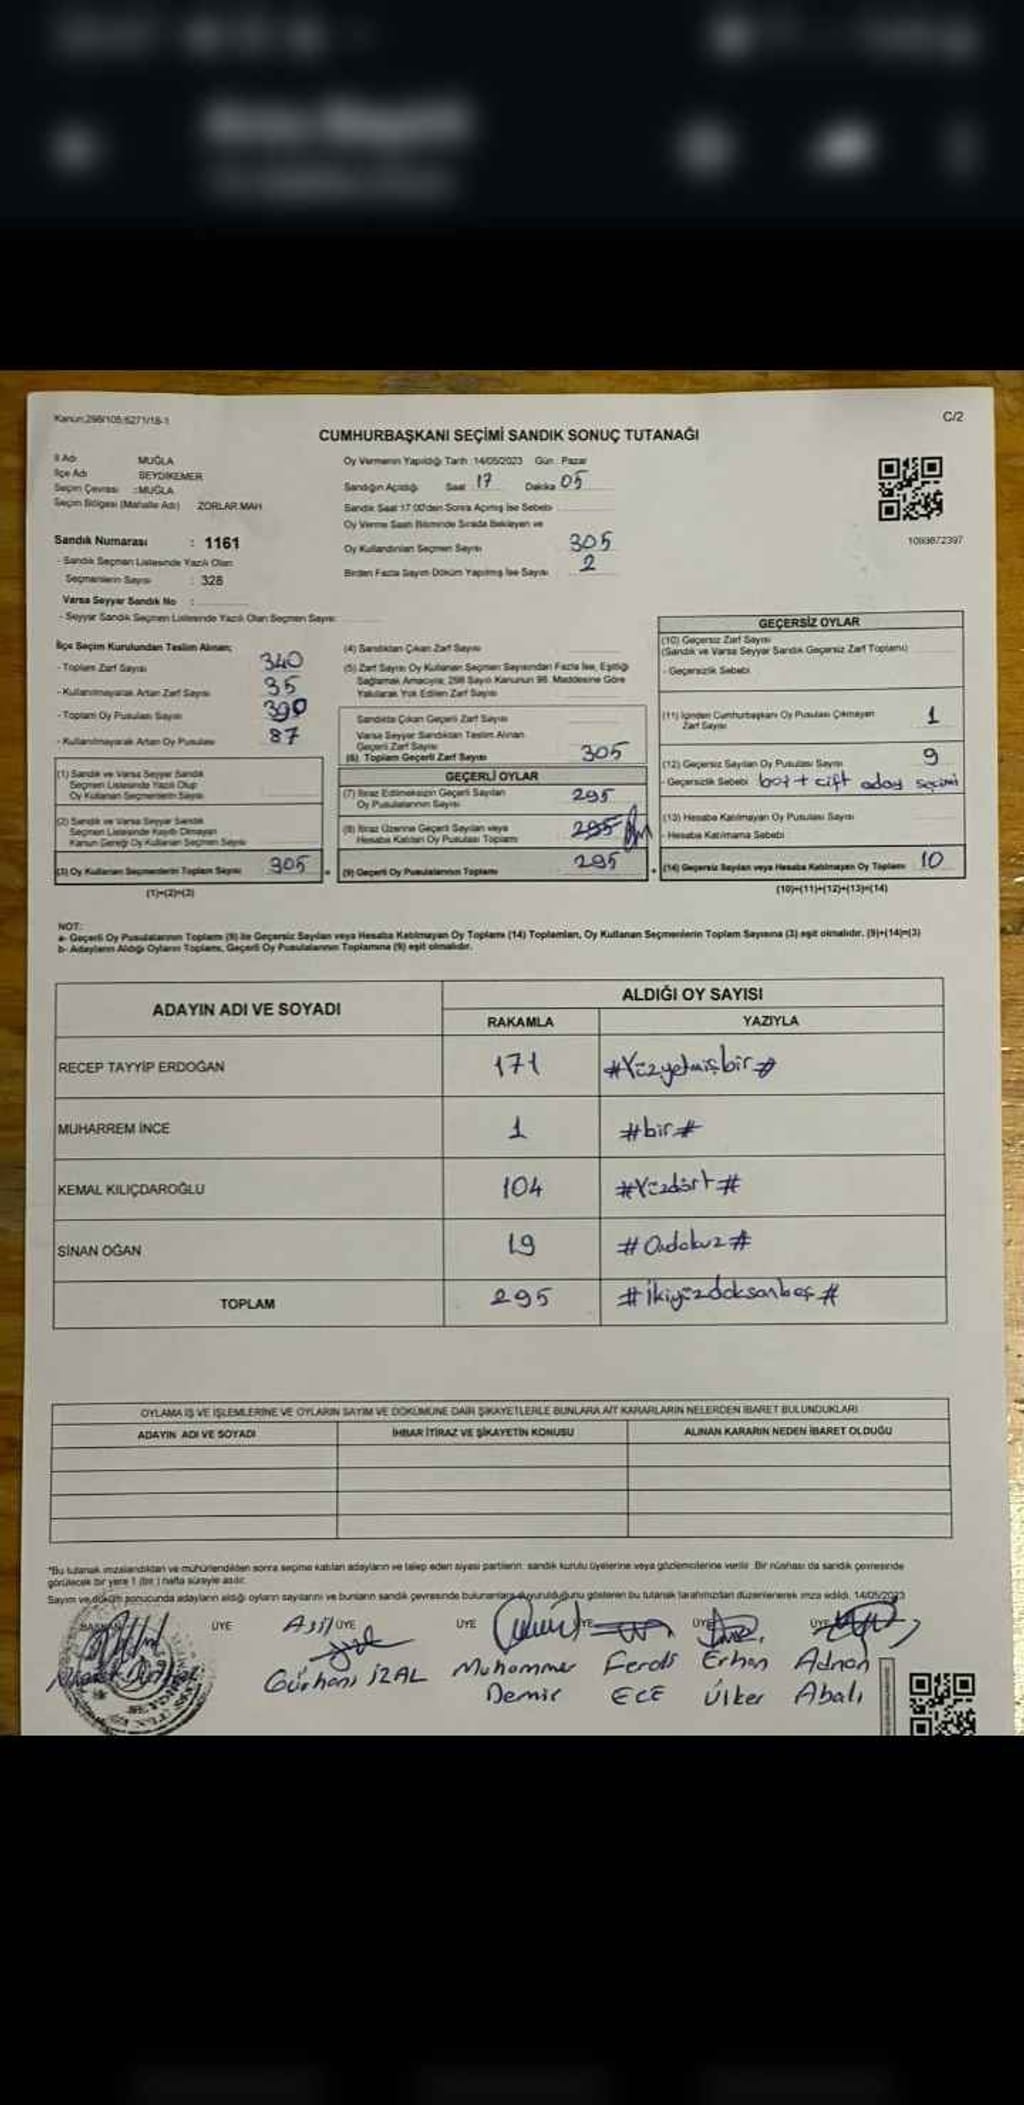 Kanun:298/105;6271/18-1
C/2
CUMHURBAŞKANI SEÇİMİ SANDIK SONUÇ TUTANAĞI
İl Adı MUĞLA
İlçe Adı SEYDİKEMER
Seçim Çevresi :MUĞLA
Seçim Bölgesi (Mahalle Adı) ZORLAR MAH
Sandık Numarası : 1161
- Sandık Seçmen Listesinde Yazılı Olan
Seçmenlerin Sayısı : 328
Varsa Seyyar Sandık No :
- Seyyar Sandık Seçmen Listesinde Yazılı Olan Seçmen Sayısı
Oy Vermenin Yapıldığı Tarih :14/05/2023 Gün : Pazar
Sandığın Açıldığı Saat 17 Dakika 05
Sandık Saat 17.00'den Sonra Açılmış İse Sebebi
Oy Verme Saati Bitiminde Sırada Bekleyen ve
Oy Kullandırılan Seçmen Sayısı 305
Birden Fazla Sayım Döküm Yapılmış İse Sayısı 2
1093672397
İlçe Seçim Kurulundan Teslim Alınan;
- Toplam Zarf Sayısı 340
- Kullanılmayarak Artan Zarf Sayısı 35
- Toplam Oy Pusulası Sayısı 390
- Kullanılmayarak Artan Oy Pusulası 87
(1) Sandık ve Varsa Seyyar Sandık
Seçmen Listesinde Yazılı Olup
Oy Kullanan Seçmenlerin Sayısı
(2) Sandık ve Varsa Seyyar Sandık
Seçmen Listesinde Kayıtlı Olmayan
Kanun Gereği Oy Kullanan Seçmen Sayısı
(3) Oy Kullanan Seçmenlerin Toplam Sayısı 305
(1)+(2)=(3)
(4) Sandıktan Çıkan Zarf Sayısı
(5) Zarf Sayısı Oy Kullanan Seçmen Sayısından Fazla İse, Eşitliği
Sağlamak Amacıyla, 298 Sayılı Kanunun 98. Maddesine Göre
Yakılarak Yok Edilen Zarf Sayısı
Sandıkta Çıkan Geçerli Zarf Sayısı
Varsa Seyyar Sandıktan Teslim Alınan
Geçerli Zarf Sayısı
(6) Toplam Geçerli Zarf Sayısı 305
GEÇERLİ OYLAR
(7) İtiraz Edilmeksizin Geçerli Sayılan
Oy Pusulalarının Sayısı 295
(8) İtiraz Üzerine Geçerli Sayılan veya
Hesaba Katılan Oy Pusulası Toplamı 295
(9) Geçerli Oy Pusulalarının Toplamı 295
GEÇERSİZ OYLAR
(10) Geçersiz Zarf Sayısı
(Sandık ve Varsa Seyyar Sandık Geçersiz Zarf Toplamı)
- Geçersizlik Sebebi
(11) İçinden Cumhurbaşkanı Oy Pusulası Çıkmayan
Zarf Sayısı 1
(12) Geçersiz Sayılan Oy Pusulası Sayısı 9
- Geçersizlik Sebebi boş + çift aday seçimi
(13) Hesaba Katılmayan Oy Pusulası Sayısı
- Hesaba Katılmama Sebebi
(14) Geçersiz Sayılan veya Hesaba Katılmayan Oy Toplamı 10
(10)+(11)+(12)+(13)=(14)
NOT:
a- Geçerli Oy Pusulalarının Toplamı (9) ile Geçersiz Sayılan veya Hesaba Katılmayan Oy Toplamı (14) Toplamları, Oy Kullanan Seçmenlerin Toplam Sayısına (3) eşit olmalıdır. (9)+(14)=(3)
b- Adayların Aldığı Oyların Toplamı, Geçerli Oy Pusulalarının Toplamına (9) eşit olmalıdır.
ADAYIN ADI VE SOYADI
ALDIĞI OY SAYISI
RAKAMLA YAZIYLA
RECEP TAYYİP ERDOĞAN 171 #Yüzyetmişbir#
MUHARREM İNCE 1 #bir#
KEMAL KILIÇDAROĞLU 104 #Yüzdört#
SİNAN OĞAN 19 #Ondokuz#
TOPLAM 295 #ikiyüzdoksanbeş#
OYLAMA İŞ VE İŞLEMLERİNE VE OYLARIN SAYIM VE DÖKÜMÜNE DAİR ŞİKAYETLERLE BUNLARA AİT KARARLARIN NELERDEN İBARET BULUNDUKLARI
ADAYIN ADI VE SOYADI İHBAR İTİRAZ VE ŞİKAYETİN KONUSU ALINAN KARARIN NEDEN İBARET OLDUĞU
*Bu tutanak imzalandıktan ve mühürlendikten sonra seçime katılan adayların ve talep eden siyasi partilerin sandık kurulu üyelerine veya gözlemcilerine verilir. Bir nüshası da sandık çevresinde
görülecek bir yere 1 (bir) hafta süreyle asılır.
Sayım ve döküm sonucunda adayların aldığı oyların sayılarını ve bunların sandık çevresinde bulunanlara duyurulduğunu gösteren bu tutanak tarafımızdan düzenlenerek imza edildi. 14/05/2023
ÜYE Asil ÜYE ÜYE ÜYE ÜYE
Gürhani İZAL Muhammer Ferdi Erhan Adnan
Demir ECE Ülker Abalı